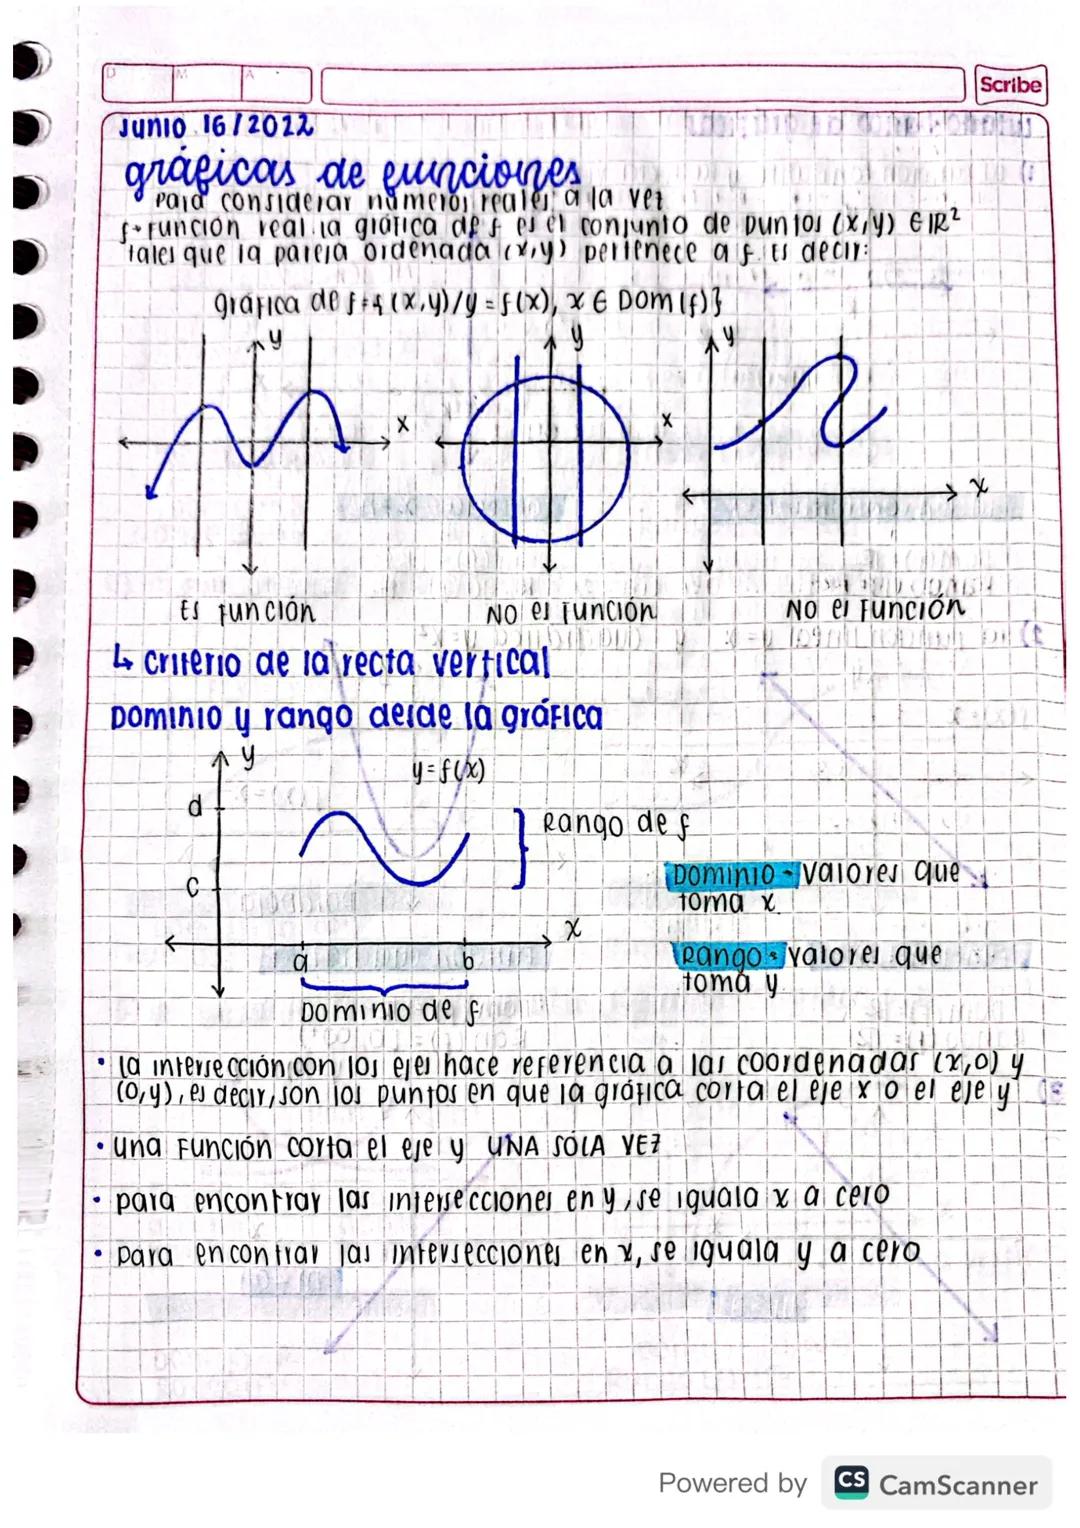 D M A
Scribe
Junio 16/2022
gráficas de funciones
Para considerar números reales a la vez
f→función real la gráfica de f es el conjunto de puntos (x,y) ∈ IR²
tales que la pareja ordenada (x,y) pertenece a f. Es decir:
gráfica de f={(x,y)/y=f(x), x ∈ Dom(f)}
y y y
x x
x
Es función NO es función NO es función
↳ criterio de la recta vertical
Dominio y rango desde la gráfica
y
y=f(x)
d
Rango de f
c
Dominio - valores que
toma x.
x
a b
Rango - valores que
toma y
Dominio de f
• la intersección con los ejes hace referencia a las coordenadas (x,0) y
(0,y), es decir, son los puntos en que la gráfica corta el eje x o el eje y
• una función corta el eje y UNA SÓLA VEZ
• para encontrar las intersecciones en y, se iguala x a cero
• para encontrar las intersecciones en x, se iguala y a cero
Powered by CS CamScanner